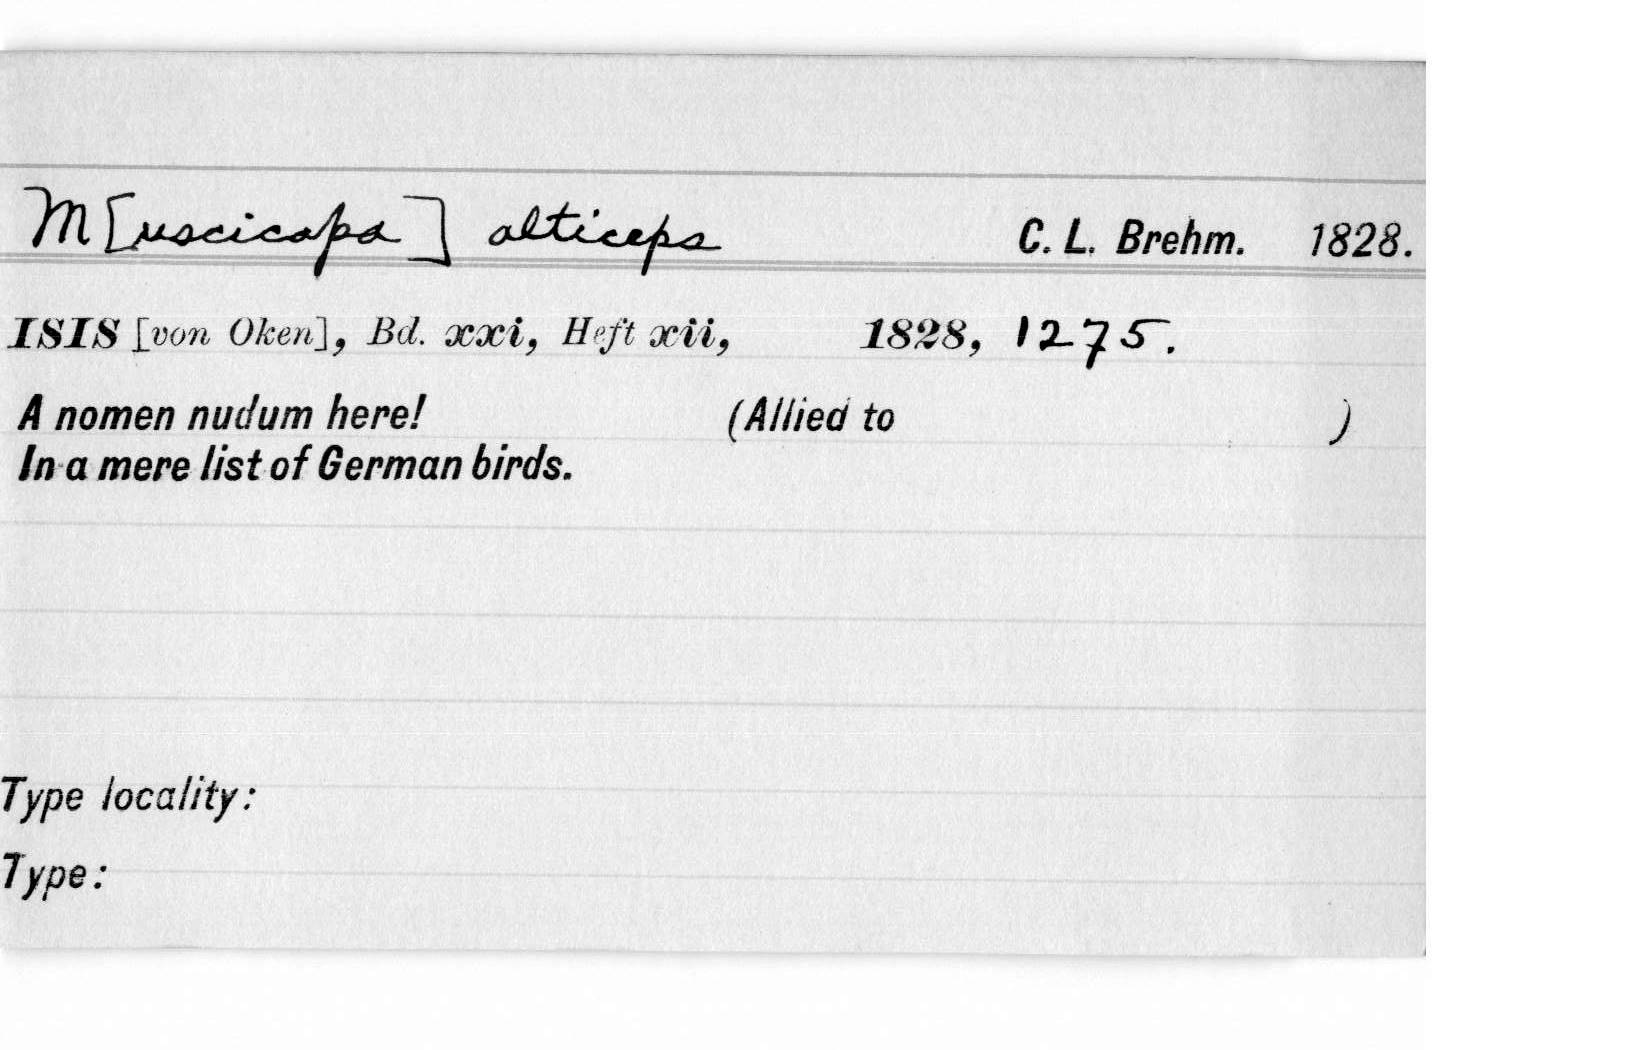 M[uscicapa] alticeps C. L. Brehm. 1828.
ISIS [von Oken], Bd. xxi, Heft xii, 1828, 1275.
A nomen nudum here! (Allied to )
In a mere list of German birds.
Type locality:
Type: